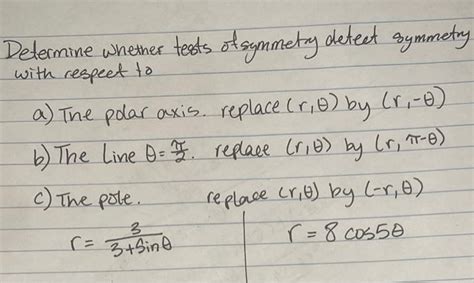 Determine whether tests of symmetry detect symmetry
with respect to
a) The polar axis. replace (r,θ) by (r,-θ)
b) The Line θ=π/2. replace (r,θ) by (r, π-θ)
c) The pole. replace (r,θ) by (-r,θ)
r = 3/(3+sinθ)
r = 8 cos5θ